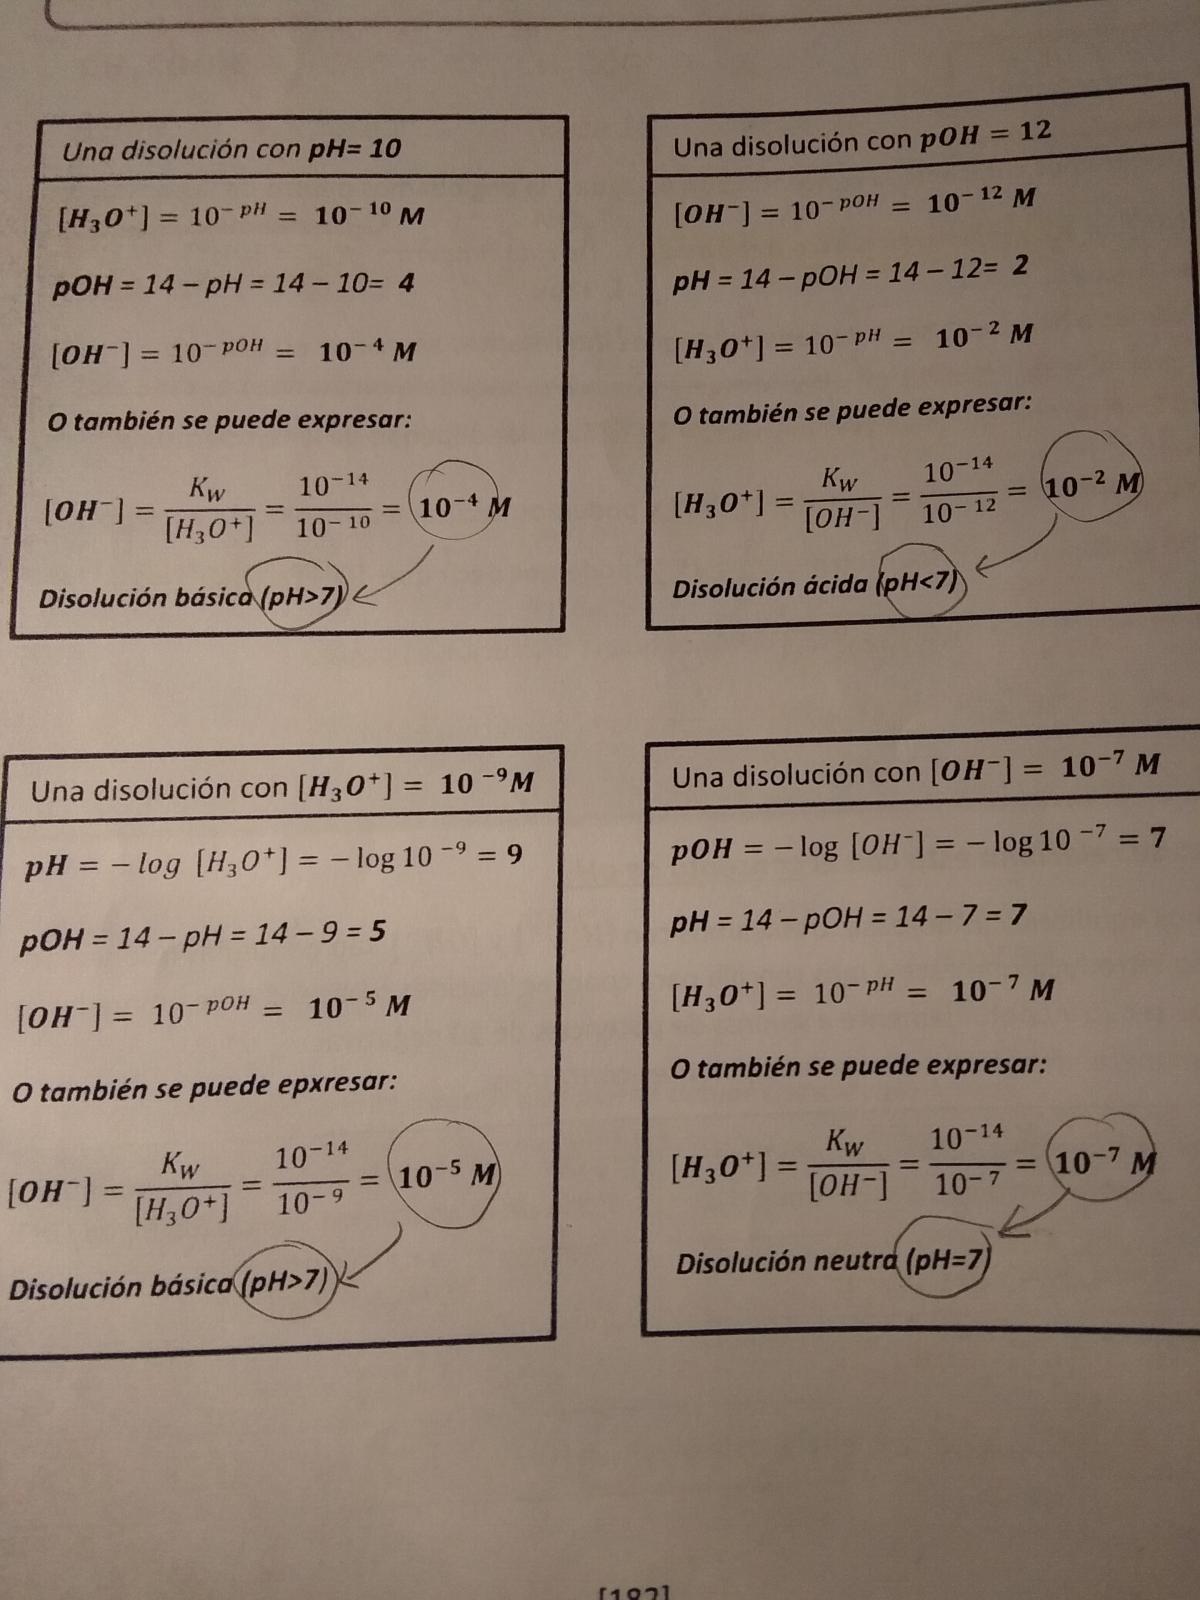 Una disolución con pH= 10
[H₃O⁺] = 10⁻ ᵖᴴ = 10⁻ ¹⁰ M
pOH = 14 – pH = 14 – 10= 4
[OH⁻] = 10⁻ ᵖᴼᴴ = 10⁻ ⁴ M
O también se puede expresar:
[OH⁻] = K_W / [H₃O⁺] = 10⁻¹⁴ / 10⁻ ¹⁰ = 10⁻⁴ M
Disolución básica (pH>7)
Una disolución con pOH = 12
[OH⁻] = 10⁻ ᵖᴼᴴ = 10⁻ ¹² M
pH = 14 – pOH = 14 – 12= 2
[H₃O⁺] = 10⁻ ᵖᴴ = 10⁻ ² M
O también se puede expresar:
[H₃O⁺] = K_W / [OH⁻] = 10⁻¹⁴ / 10⁻ ¹² = 10⁻² M
Disolución ácida (pH<7)
Una disolución con [H₃O⁺] = 10 ⁻⁹M
pH = – log [H₃O⁺] = – log 10 ⁻⁹ = 9
pOH = 14 – pH = 14 – 9 = 5
[OH⁻] = 10⁻ ᵖᴼᴴ = 10⁻ ⁵ M
O también se puede epxresar:
[OH⁻] = K_W / [H₃O⁺] = 10⁻¹⁴ / 10⁻ ⁹ = 10⁻⁵ M
Disolución básica (pH>7)
Una disolución con [OH⁻] = 10⁻⁷ M
pOH = – log [OH⁻] = – log 10 ⁻⁷ = 7
pH = 14 – pOH = 14 – 7 = 7
[H₃O⁺] = 10⁻ ᵖᴴ = 10⁻ ⁷ M
O también se puede expresar:
[H₃O⁺] = K_W / [OH⁻] = 10⁻¹⁴ / 10⁻ ⁷ = 10⁻⁷ M
Disolución neutra (pH=7)
[182]